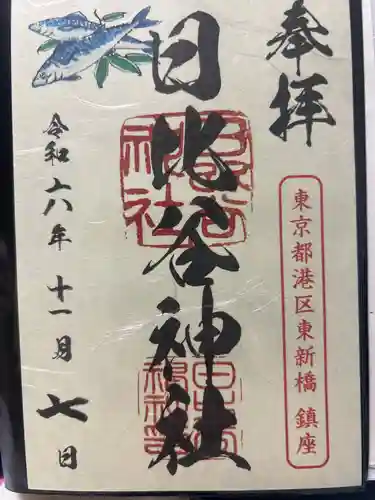 奉拝
東京都港区東新橋 鎮座
日比谷神社
令和六年 十一月 七日
日比谷神社